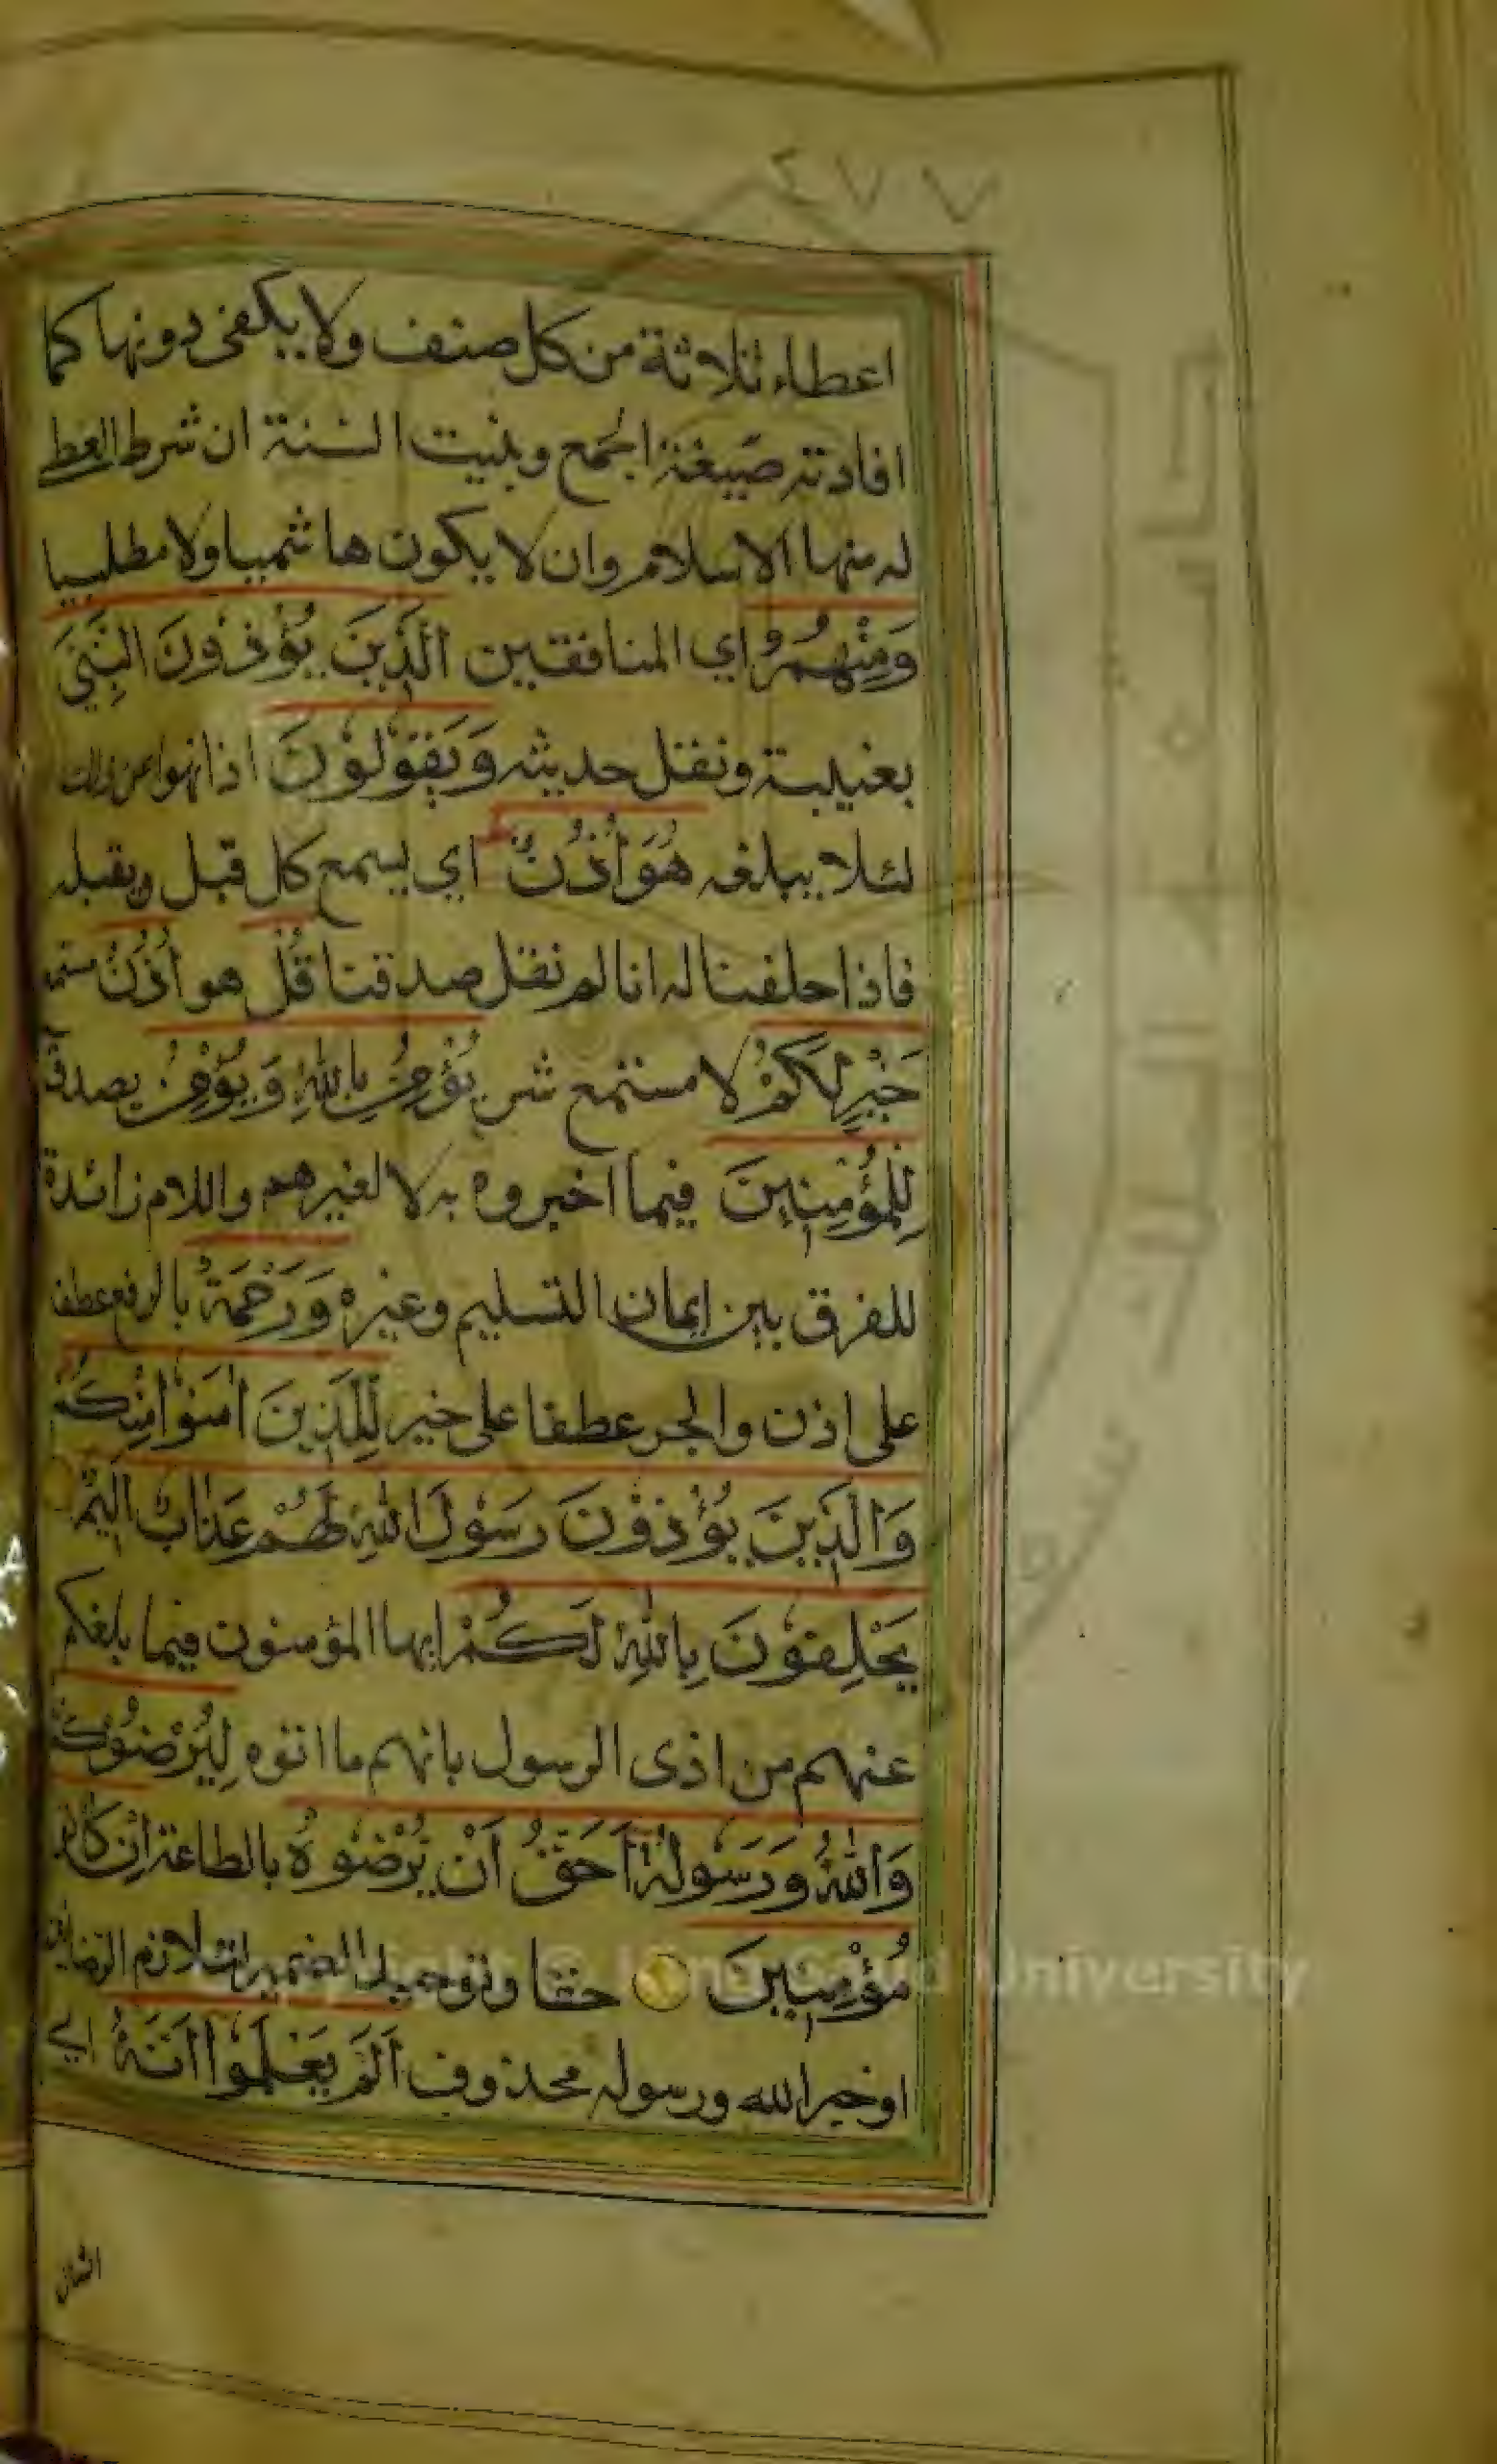 ٤٧٧
اعطاء ثلاثة من كل صنف ولا يكفى دونها كما
افادته صيغة الجمع وبنيت السنة ان شرط المعط
له منها الاسلام وان لا يكون هاشميا ولا مطلبيا
وَمِنْهُمُ اي المنافقين الَّذِينَ يُؤْذُونَ النَّبِيَّ
بعيبة ونقل حديثه وَيَقُولُونَ اذا نهوا عن ذلك
لئلا يبلغه هُوَ أُذُنٌ اي يسمع كل قيل ويقبله
فاذا حلفنا له انا لم نقل صدقنا قُلْ هو أُذُنُ مستمع
خَيْرٍ لَكُمْ لا مستمع شر يُؤْمِنُ بِاللّٰهِ وَيُؤْمِنُ يصدق
لِلْمُؤْمِنِينَ فيما اخبروه به لا لغيرهم واللام زائدة
للفرق بين ايمان التسليم وغيره وَرَحْمَةٌ بالرفع عطفا
على اذن والجر عطفا على خير لِلَّذِينَ اٰمَنُوْا مِنْكُمْ
وَالَّذِينَ يُؤْذُوْنَ رَسُوْلَ اللّٰهِ لَهُمْ عَذَابٌ اَلِيْمٌ
يَحْلِفُوْنَ بِاللّٰهِ لَكُمْ ايها المؤمنون فيما بلغكم
عنهم من اذى الرسول بانهم ما اتوه لِيُرْضُوْكُمْ
وَاللّٰهُ وَرَسُولُهُٓ اَحَقُّ اَنْ يُرْضُوْهُ بالطاعة اِنْ كَانُوا
مُؤْمِنِينَ حقا وتوحيد الضمير لتلازم الرضائين
او خبر الله ورسوله محذوف اَلَمْ يَعْلَمُوْا اَنَّهُ اي
الشان
Copyright © King Saud University